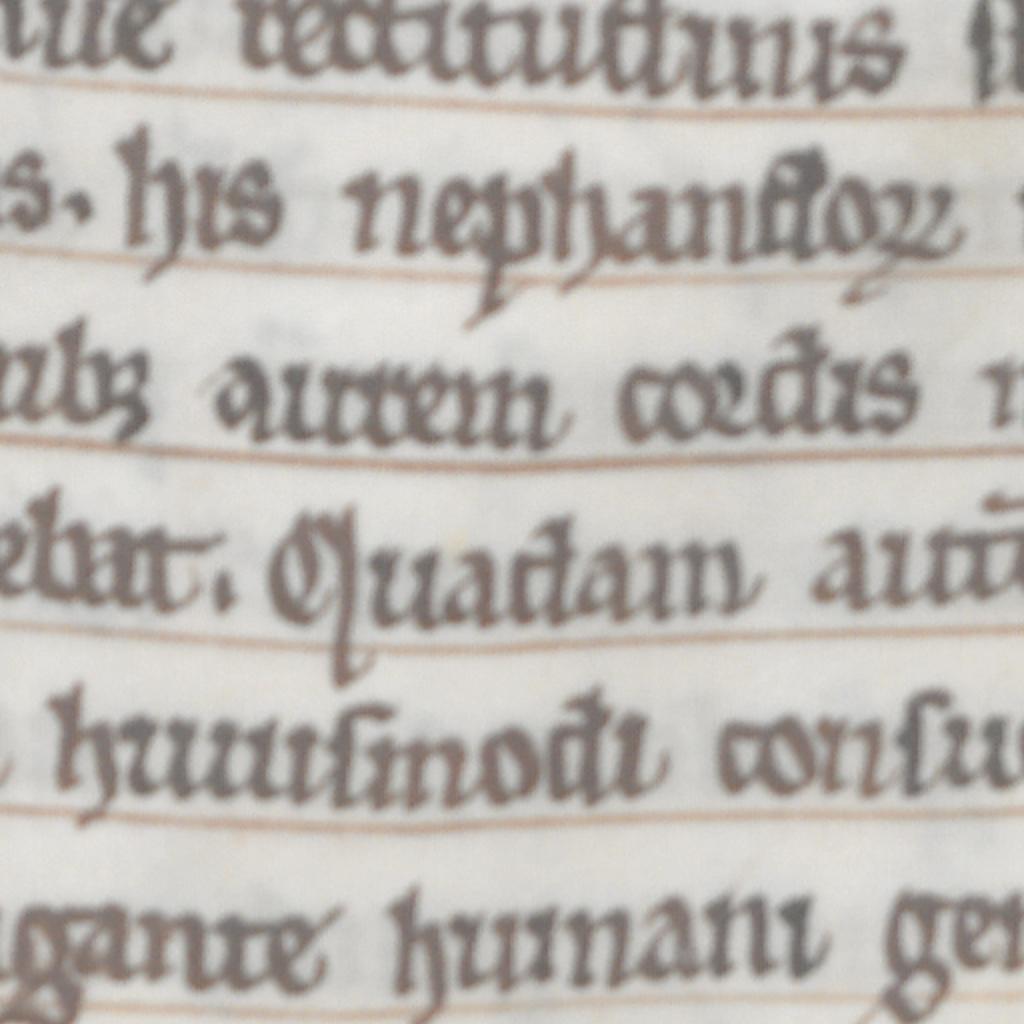 rectitudinis
his nephandoꝝ
autem cordis
ebat. Quadam autē
huiusmodi consu
gante humani gen